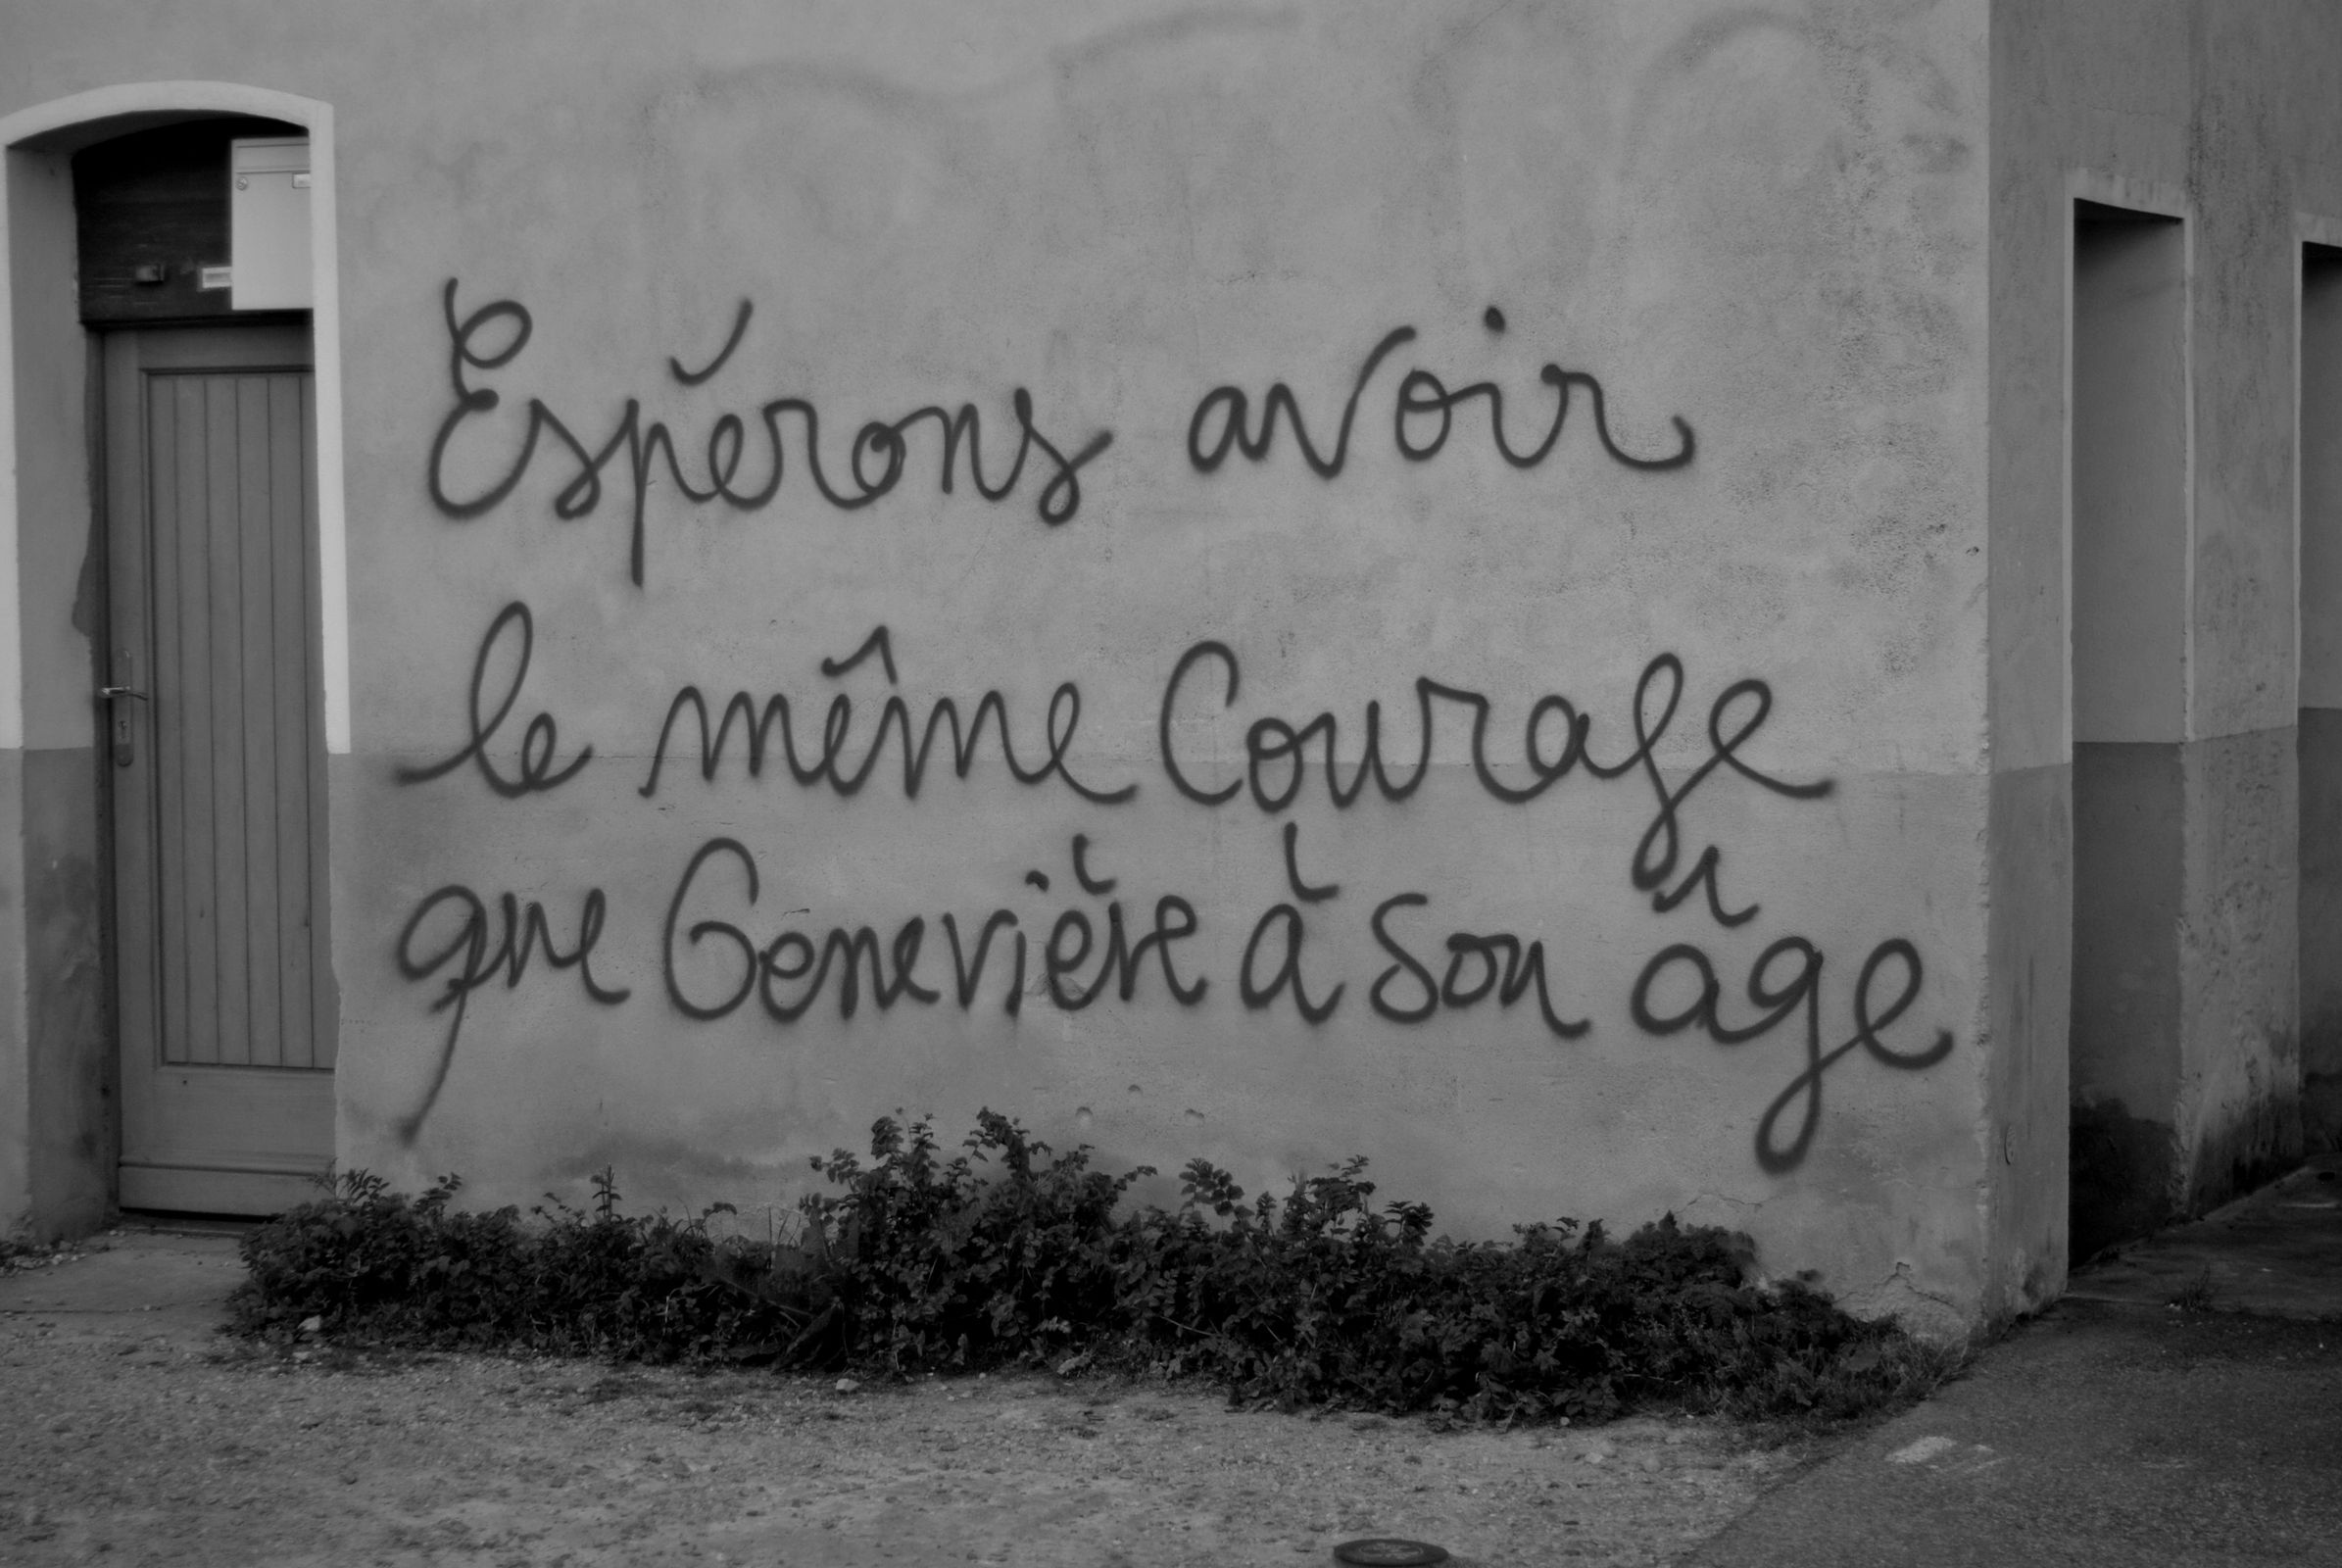 Espérons avoir
le même Courage
que Geneviève à son âge